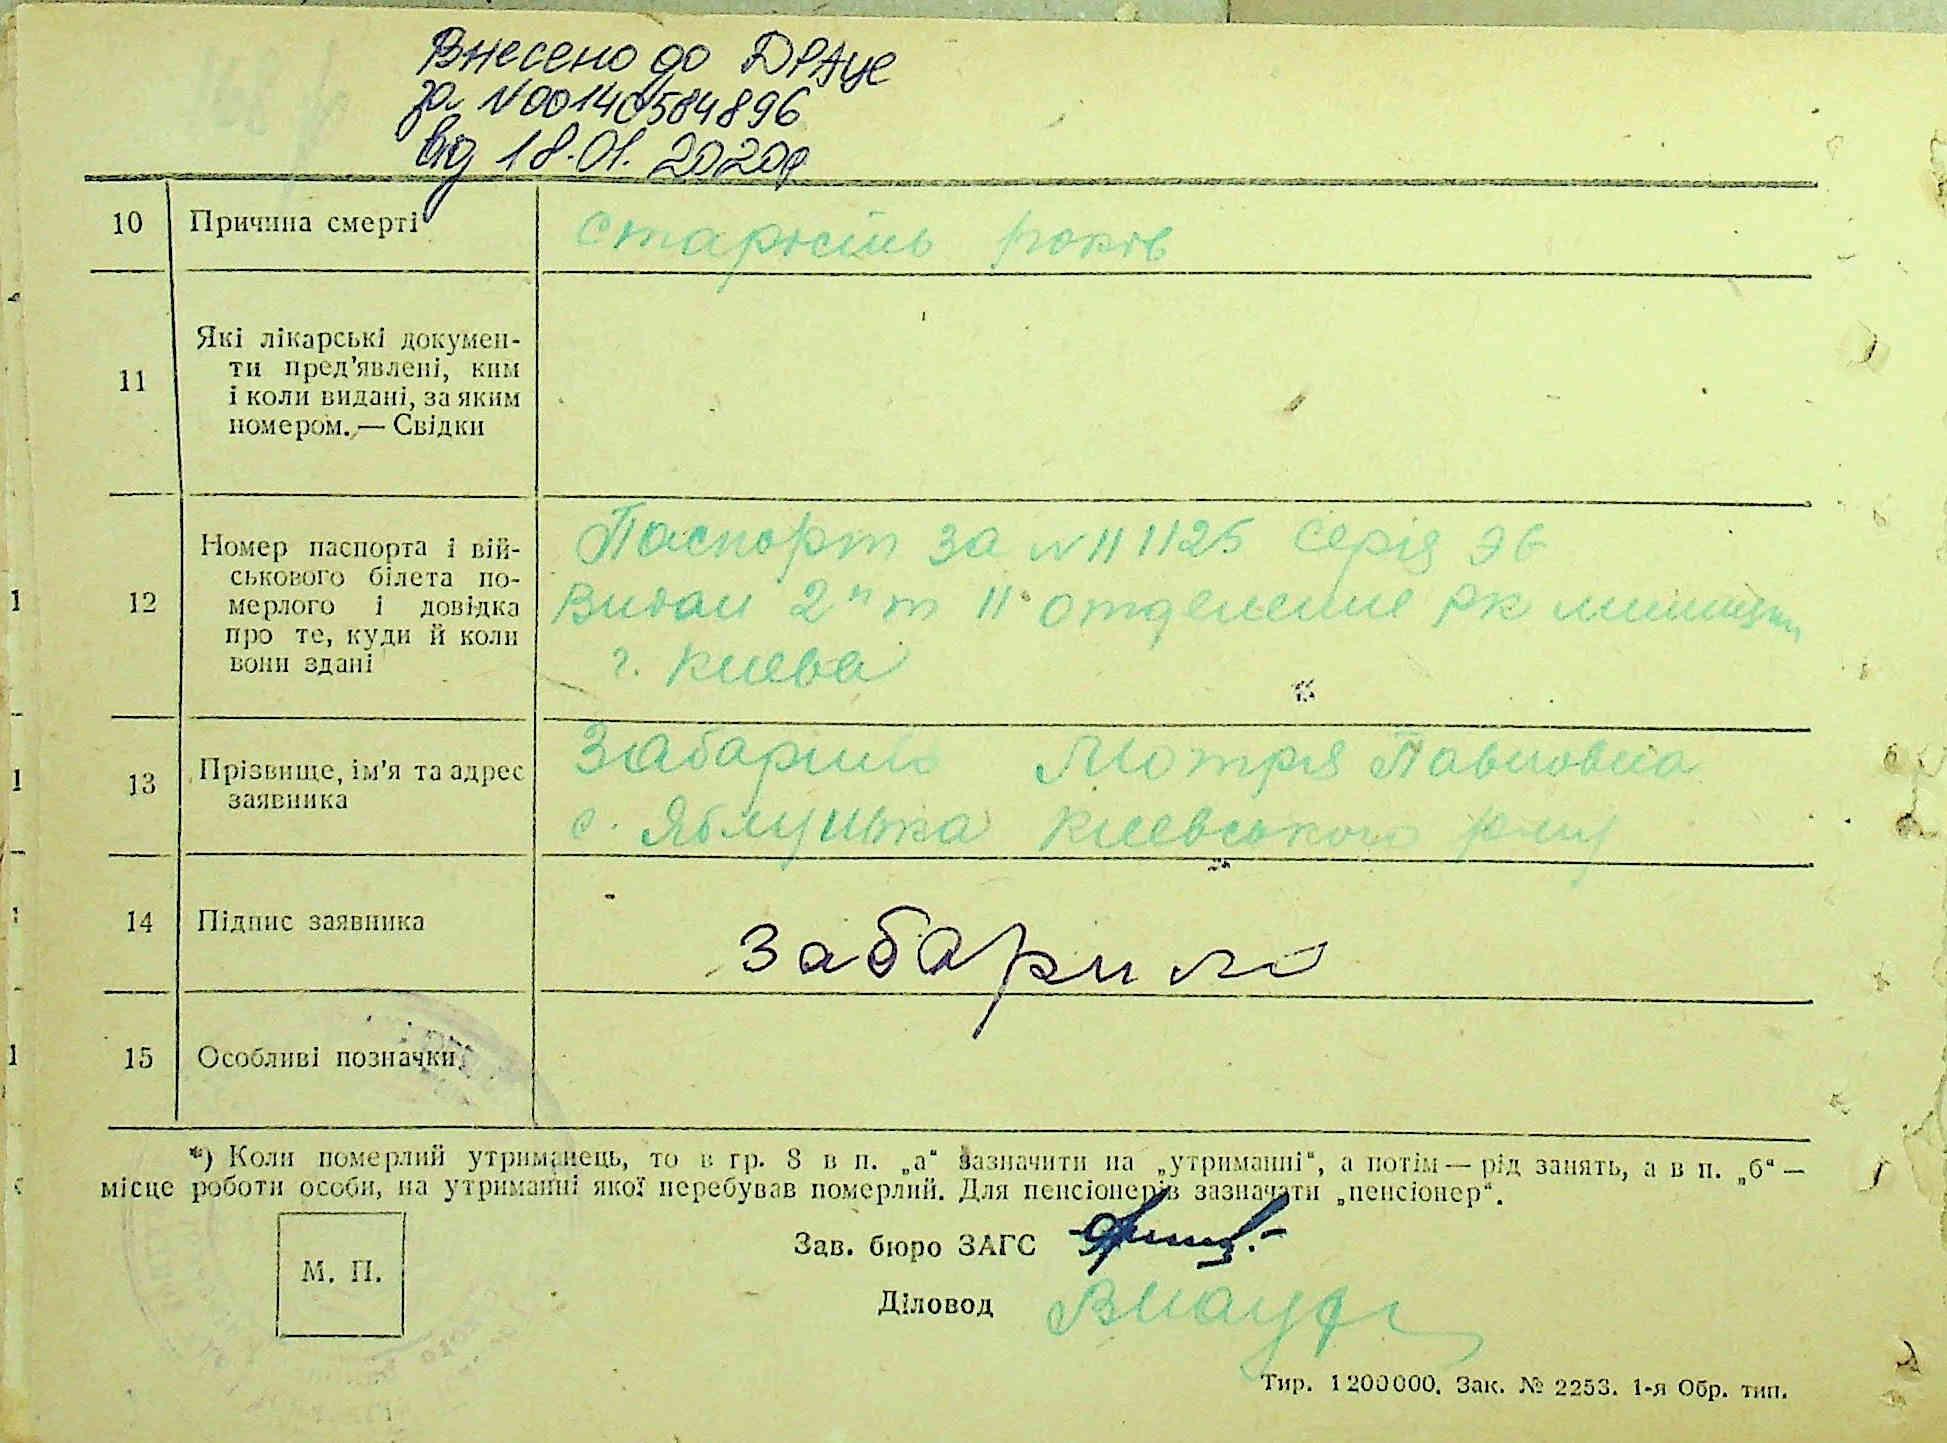 Внесено до ДРАЦС
за N00140584896
від 18.01.2020р
10 Причина смерті старость років
11 Які лікарські докумен-
ти пред'явлені, ким
і коли видані, за яким
номером.— Свідки
12 Номер паспорта і вій-
ськового білета по-
мерлого і довідка
про те, куди й коли
вони здані
Паспорт за N 111125 серія ЭБ
Видан 2 11 отделение РК милиции
г. Киева
13 Прізвище, ім'я та адрес
заявника
Забарило Мотря Павловна
с. Яблунька Киевського р-ну
14 Підпис заявника Забарило
15 Особливі позначки
*) Коли померлий утриманець, то в гр. 8 в п. „а“ зазначити на „утриманні“, а потім — рід занять, а в п. „б“ —
місце роботи особи, на утриманні якої перебував померлий. Для пенсіонерів зазначати „пенсіонер“.
Зав. бюро ЗАГС
М. П.
Діловод
Тир. 1200000. Зак. № 2253. 1-я Обр. тип.